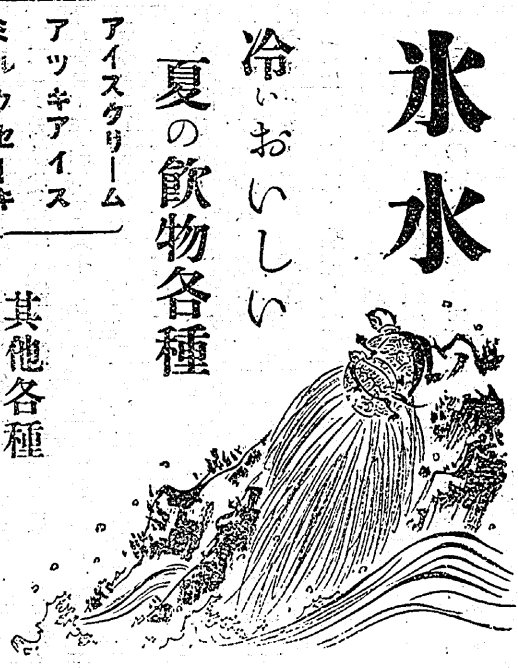 氷水
冷いおいしい
夏の飲物各種
アイスクリーム
アツキアイス
其他各種